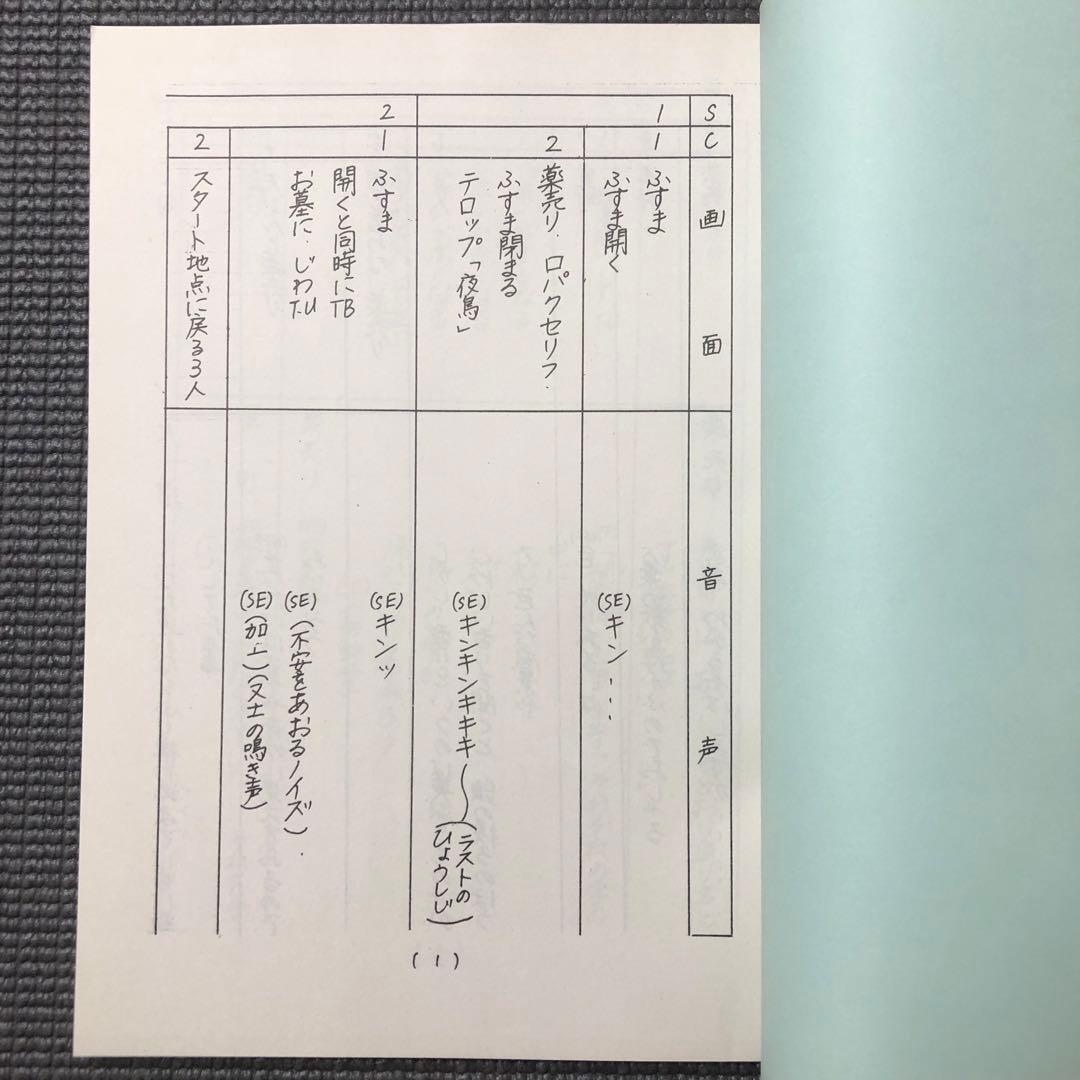 S
C
画面
音声
1
1
ふすま
ふすま開く
(SE)キン...
2
薬売り、口パクセリフ.
ふすま閉まる
テロップ「夜鳥」
(SE)キンキンキキキ〜〜(ラストの
ひょうしじ)
2
1
ふすま
(SE)キンッ
開くと同時にTB
お墓に、じわT.U
(SE)(不安をあおるノイズ).
2
スタート地点に戻る3人
(1)